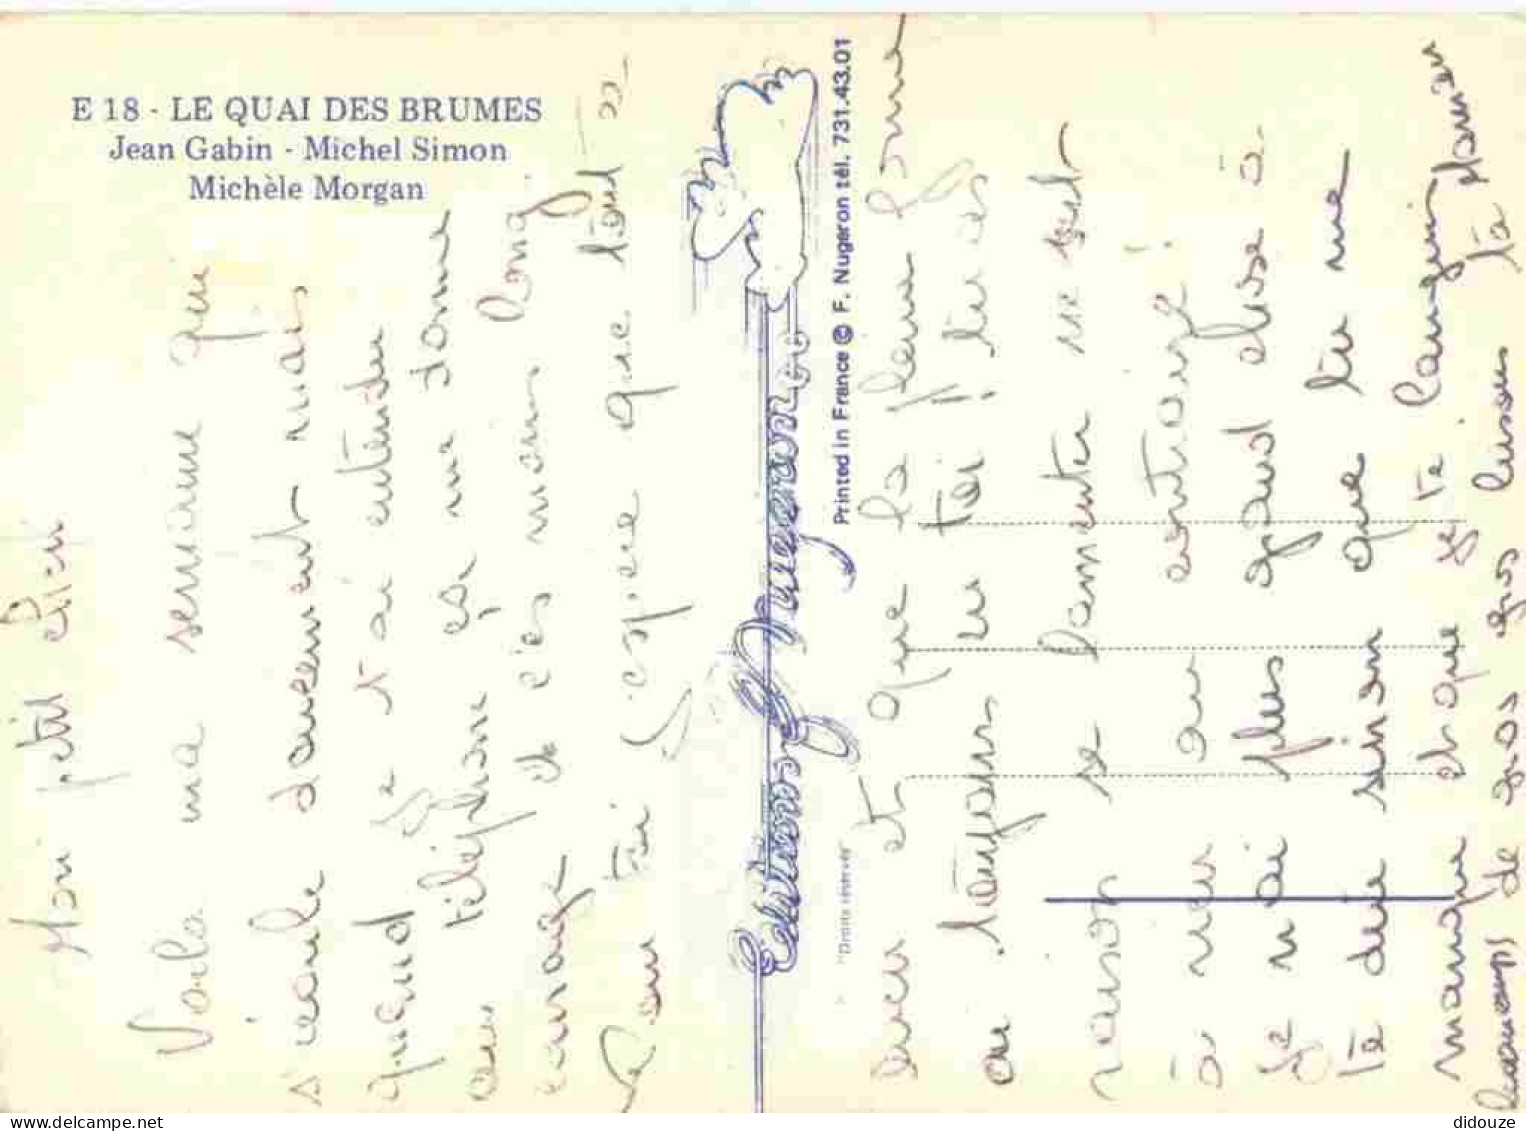 E 18 - LE QUAI DES BRUMES
Jean Gabin - Michel Simon
Michèle Morgan
Mon petit
Voila ma semaine qui
s'écoule doucement mais
quand je t'ai entendu
au téléphone ça me donne
courage et c'est moins long
Pour toi j'espère que tout se
Editions F. Nugeron
"Droits réservés"
Printed in France © F. Nugeron tél. 731.43.01
bien et que la
au toujours toi ! tu as
raison se lamenter ne sert
à rien au contraire !
Je n'ai plus grand chose à
te dire sinon que tu me
manque et que je te
de gros gros bisous ta maman
didouze